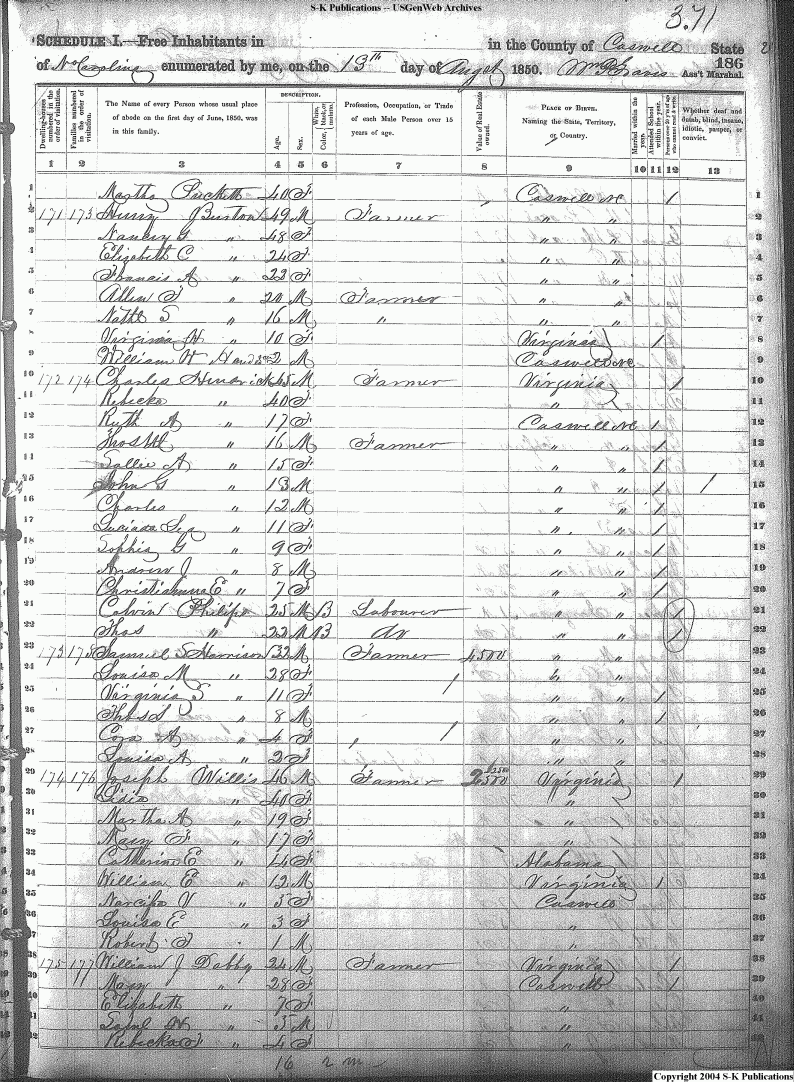 S-K Publications -- USGenWeb Archives
371
SCHEDULE I.—Free Inhabitants in in the County of Caswell State
of No Carolina enumerated by me, on the 13th day of August 1850. Ass't Marshal.
186
Dwelling-houses numbered in the order of visitation.
Families numbered in the order of visitation.
The Name of every Person whose usual place of abode on the first day of June, 1850, was in this family.
DESCRIPTION.
Age.
Sex.
Color, White, black, or mulatto.
Profession, Occupation, or Trade of each Male Person over 15 years of age.
Value of Real Estate owned.
PLACE OF BIRTH.
Naming the State, Territory, or Country.
Married within the year.
Attended School within the year.
Persons over 20 y'rs of age who cannot read & write.
Whether deaf and dumb, blind, insane, idiotic, pauper, or convict.
1 2 3 4 5 6 7 8 9 10 11 12 13
1 Martha Puckett 40 F Caswell NC / 1
2 171 173 Henry J Burton 49 M Farmer " " 2
3 Nancy G " 48 F " " 3
4 Elizabeth C " 24 F " " 4
5 Francis A " 22 F " " 5
6 Allen F " 20 M Farmer " " 6
7 Nathl S " 16 M " " " 7
8 Virginia H " 10 F Virginia / 8
9 William W 2 M Caswell NC 9
10 172 174 Charles Hendrick 45 M Farmer Virginia / 10
11 Rebecka " 40 F " 11
12 Ruth A " 17 F Caswell NC / 12
13 Thos M " 16 M Farmer " " / 13
14 Sallie A " 15 F " " / 14
15 John G " 13 M " " / / 15
16 Charles " 12 M " " / 16
17 Lucinda " 11 F " " / 17
18 Sophia G " 9 F " " / 18
19 Andrew J " 8 M " " / 19
20 Christianna E " 7 F " " / 20
21 Calvin Philips 25 M B Labourer " " / 21
22 Thos " 22 M B do " " / 22
23 173 175 Samuel S Harrison 32 M Farmer 4500 " " 23
24 Louisa M " 28 F " " 24
25 Virginia S " 11 F " " / 25
26 Thos S " 8 M " " / 26
27 Cora A " 4 F " " 27
28 Louisa A " 2 F " " 28
29 174 176 Joseph Willis 46 M Farmer 2500 Virginia / 29
30 " 40 F " 30
31 Martha A " 19 F " 31
32 Mary F " 17 F " 32
33 Catherine E " 14 F Alabama 33
34 William E " 12 M Virginia / 34
35 Narcissa V " 5 F Caswell 35
36 Louisa E " 3 F " 36
37 Robert 1 M " 37
38 175 177 William J Dabby 24 M Farmer Virginia / 38
39 Mary " 28 F Caswell / 39
40 Elizabeth " 7 F " 40
41 " 5 M " 41
42 Rebecka F " 4 F " 42
16 2 m
Copyright 2004 S-K Publications